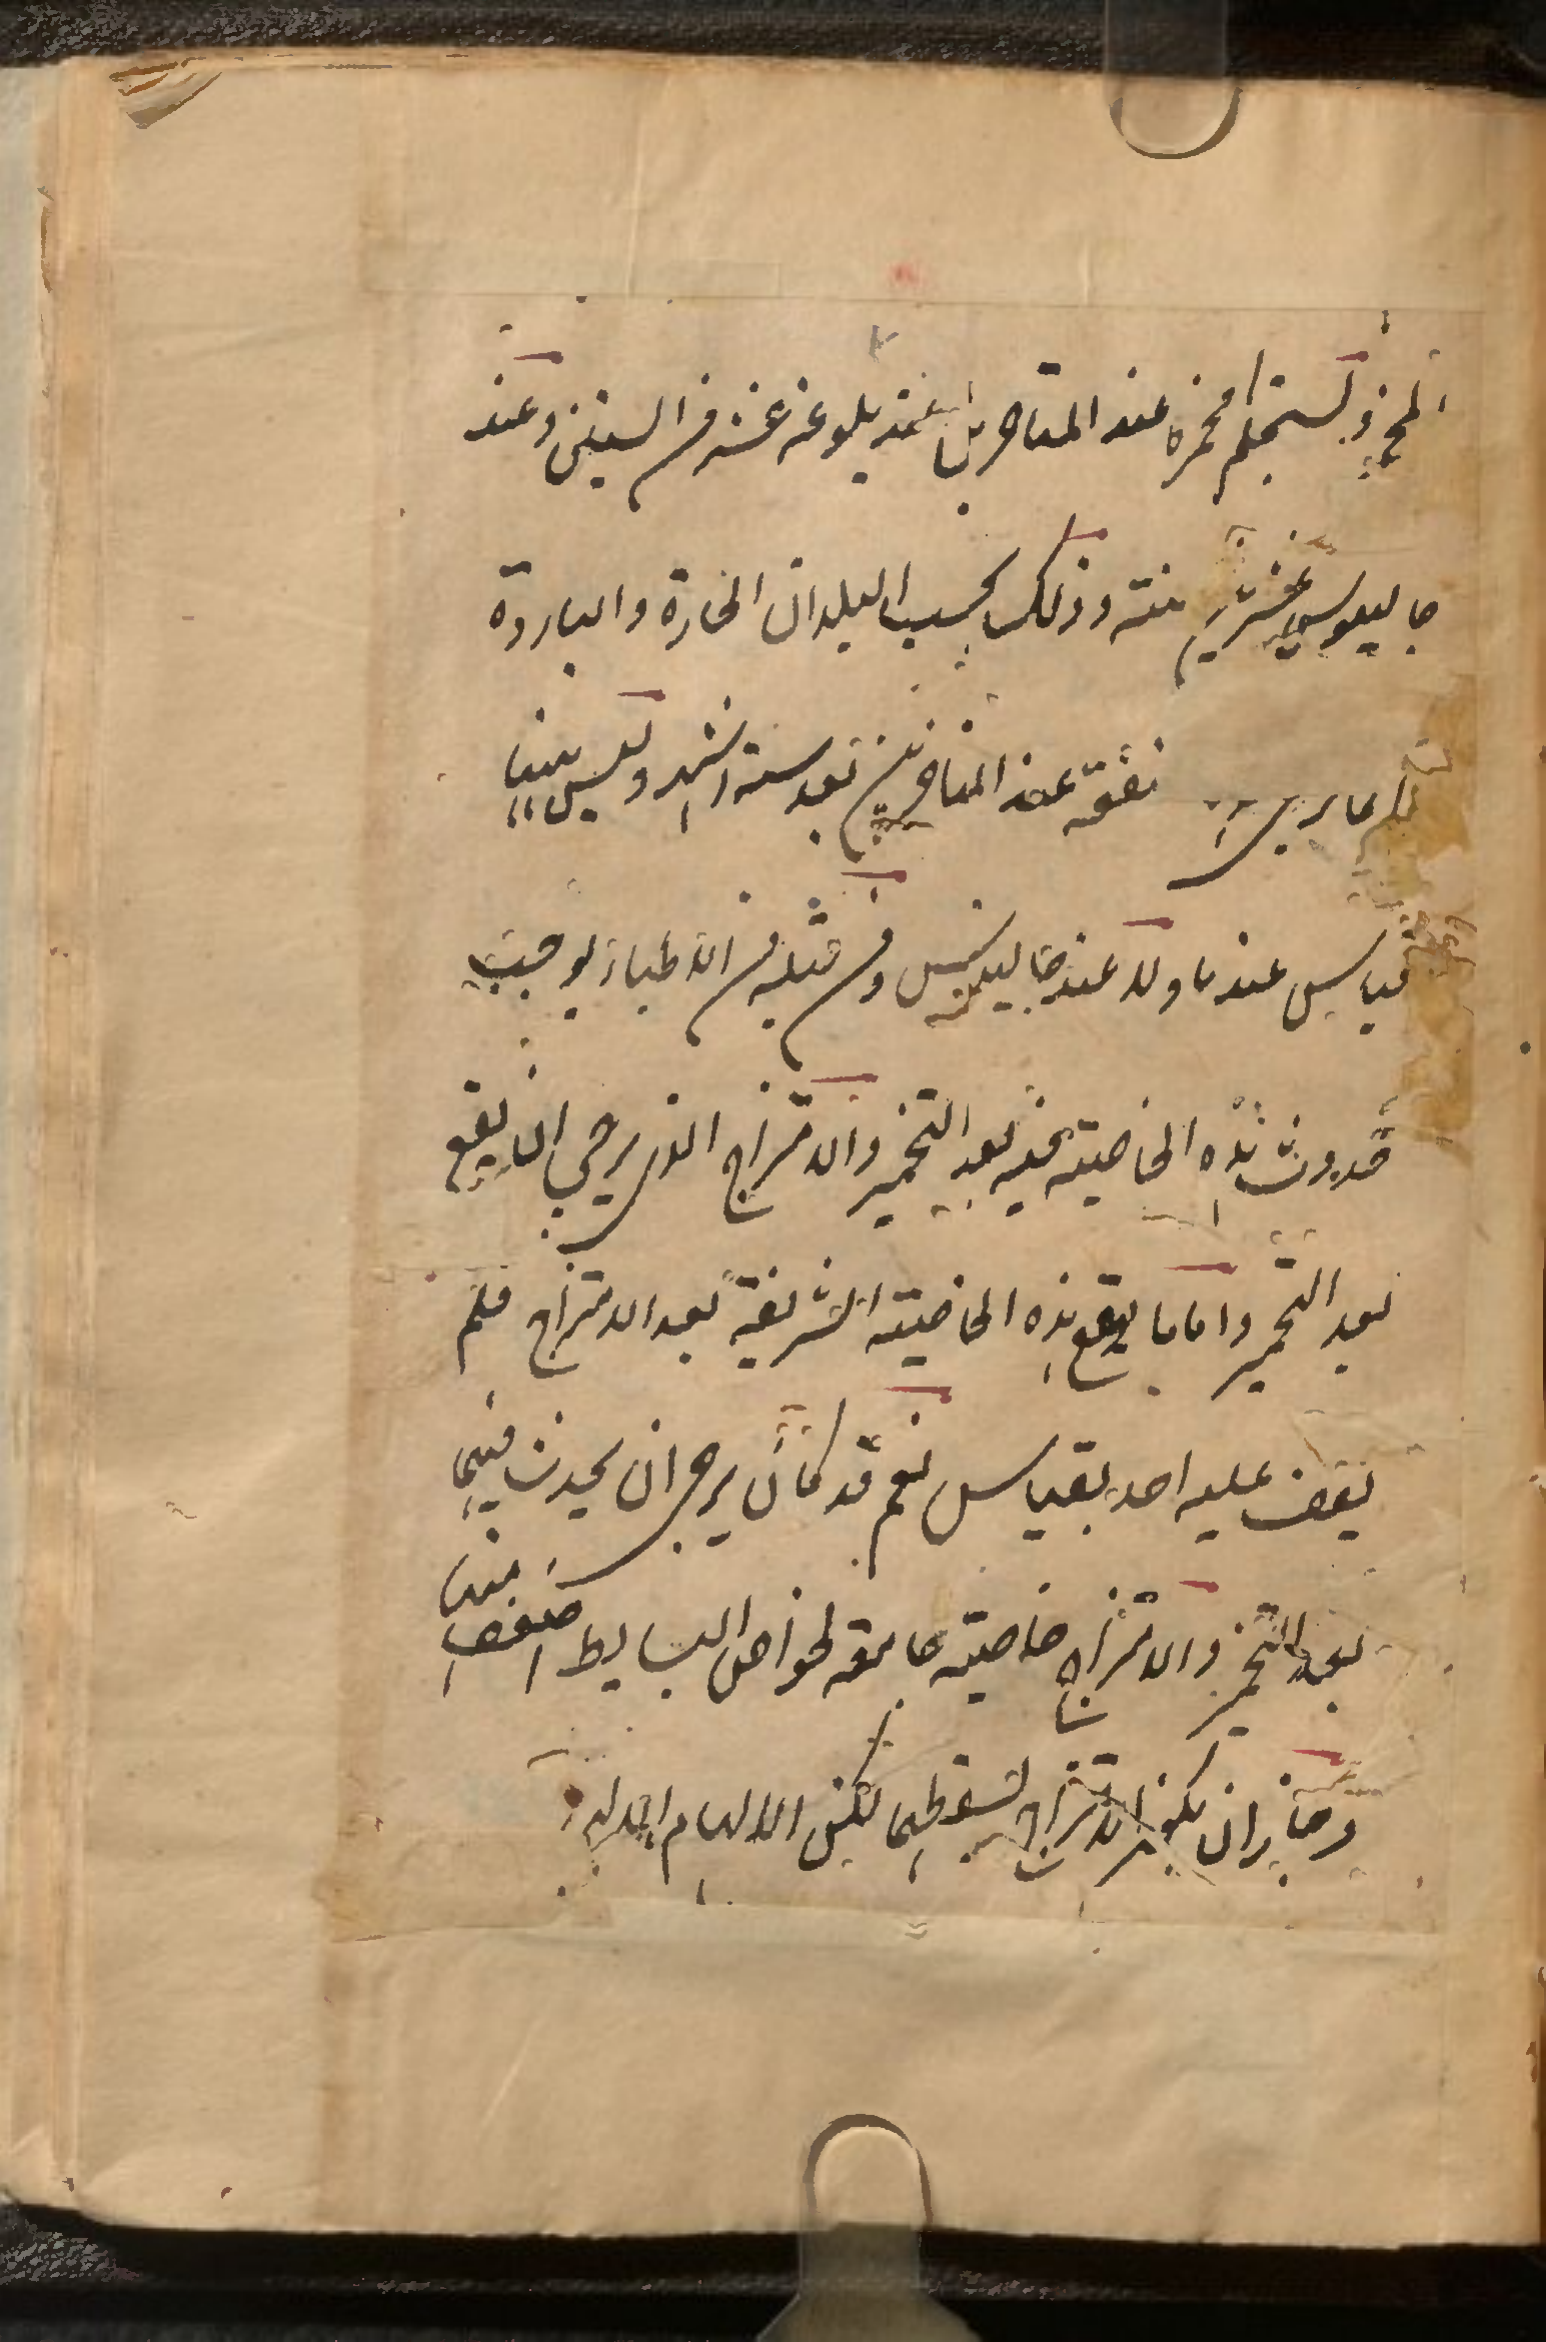 ويستحكم تخمره عند المتاخرين عند بلوغه عشر من السنين وعند
جالينوس عشرين سنة وذلك بحسب البلدان الحارة والباردة
عند المتاخرين بعد ستة اشهر وليس بيننا
قياس عندنا ولا عند جالينوس ومن قبله من الاطباء يوجب
حدوث هذه الخاصية فيه بعد التخمير والامتزاج الذي يرجى ان يقع
بعد التخمير واما ما يقع هذه الخاصية الشريفة بعد الامتزاج فلم
يقف عليه احد بقياس نعم قد كان يرجى ان يحدث فيما بيننا
بعد التخمير والامتزاج خاصية جامعة لخواص البسايط اضعف
وجاز ان يكون الامتزاج يسقطها لكن الالهام